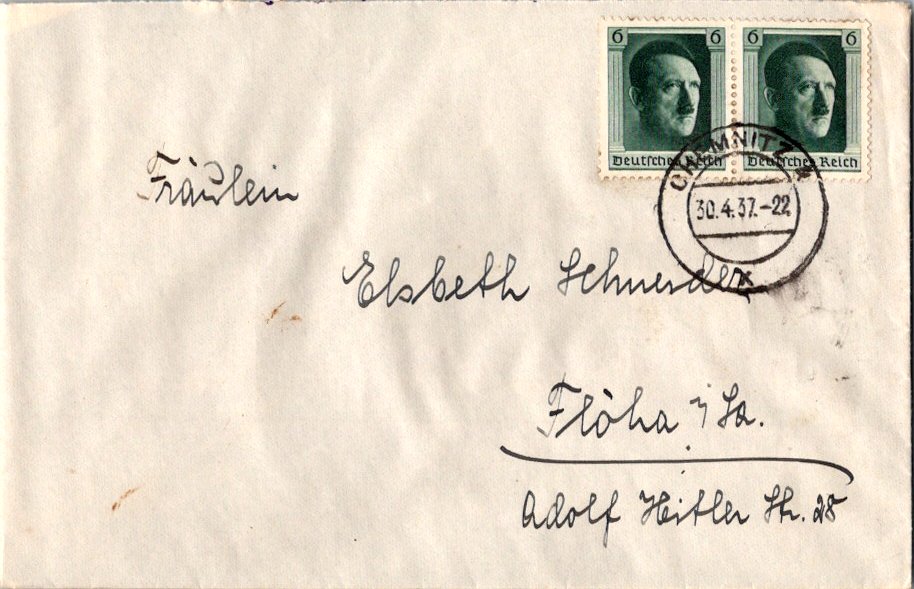 6 6 6 6
Deutsches Reich Deutsches Reich
CHEMNITZ 4
30.4.37.-22
x
Fräulein
Elsbeth Schneider
Flöha i/Sa.
Adolf Hitler Str. 28